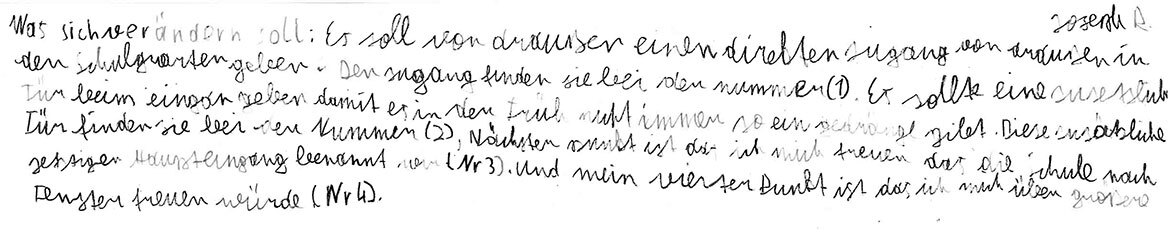 Joseph R.
Was sich verändern soll: Es soll von draußen einen direkten zugang von drausen in
den schulgarten geben. Den zugang finden sie bei der nummer (1). Es sollte eine
Tür beim eingan geben damit es in der Früh nicht immer so ein gedränge gibt. Diese
Tür finden sie bei der Nummer (2), Nächster Punkt ist das ich mich freuen das die schule nach
jetzigen Haupteingang benannt (Nr 3). Und mein vierter Punkt ist das ich mich über größere
Fenster freuen würde (Nr 4).